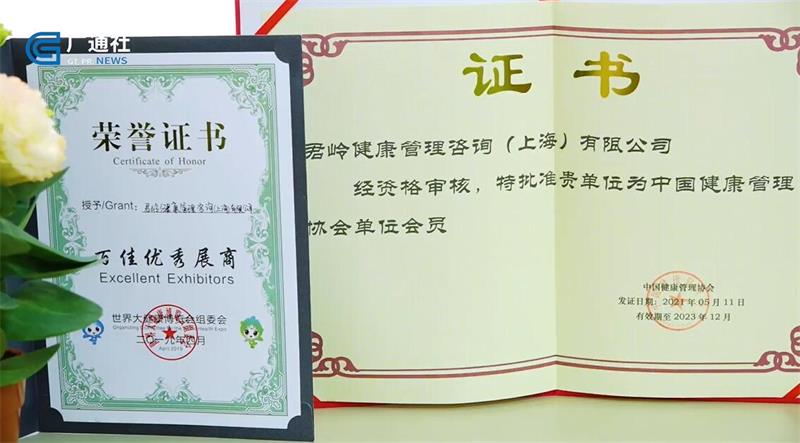 广通社
GT.PR.NEWS
荣誉证书
Certificate of Honor
授予/Grant: 君岭健康管理咨询(上海)有限公司
百佳优秀展商
Excellent Exhibitors
世界大健康博览会组委会
二〇一九年四月
April 2019
证书
君岭健康管理咨询（上海）有限公司
经资格审核，特批准贵单位为中国健康管理
协会单位会员
中国健康管理协会
发证日期：2021年05月11日
有效期至2023年12月